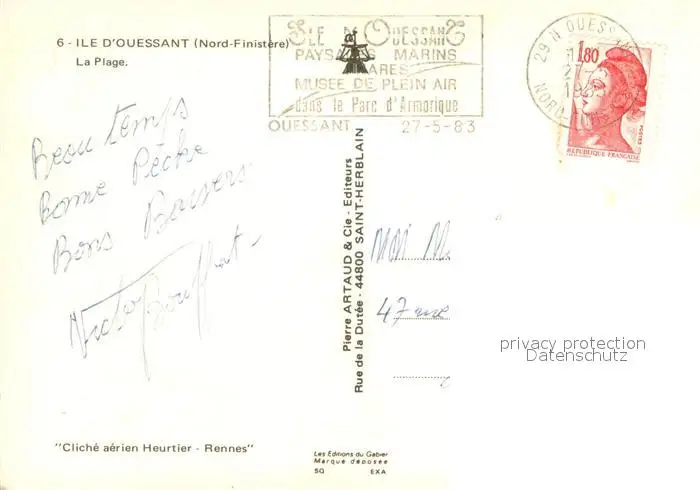 6 - ILE D'OUESSANT (Nord-Finistère)
La Plage.
ILE D'OUESSANT
PAYSAGES MARINS
PHARES
MUSEE DE PLEIN AIR
dans le Parc d'Armorique
OUESSANT 27-5-83
29 N OUESSANT
NORD-
1,80
POSTES
REPUBLIQUE FRANÇAISE
Beau temps
Bonne Pêche
Bons Baisers
Pierre ARTAUD & Cie - Editeurs
Rue de la Dutée - 44800 SAINT-HERBLAIN
47 rue
privacy protection
Datenschutz
"Cliché aérien Heurtier - Rennes"
Les Editions du Gabier
Marque déposée
SQ EXA